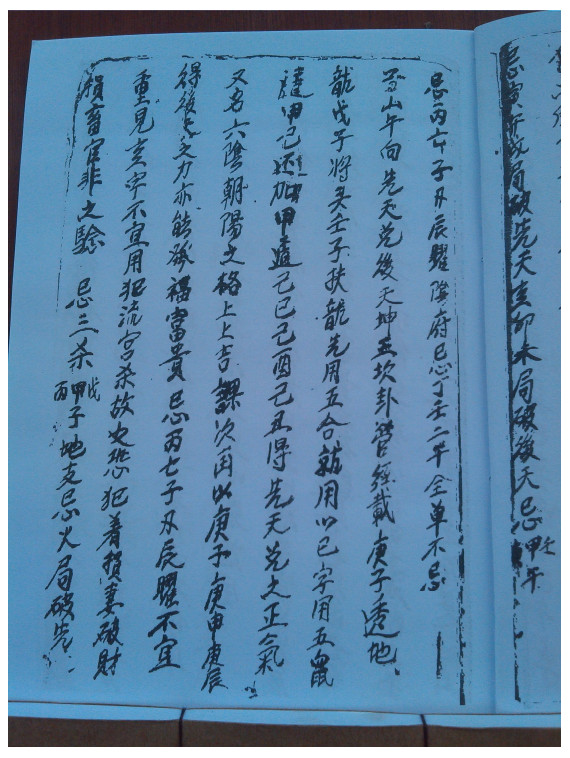 忌寅午戌局破先天亥卯未局破後天忌甲午壬
忌丙七子丑辰曜陰府忌丁壬二干全单不忌
山午向先天兑後天坤五坎卦管經載庚子透地
龍戊子將癸壬子扶龍先用五合就用以己字用五鼠
遁甲己还加甲遁己巳己酉己丑得先天兑之正氣
又名六陰朝陽之格上上吉課次用以庚子庚申庚辰
得後天之力亦能發福富貴忌丙七子丑辰曜不宜
重見亥字不宜用犯流宫杀故也恐犯着損妻破財
損畜官非之驗 忌三杀丙甲戊子地支忌火局破先